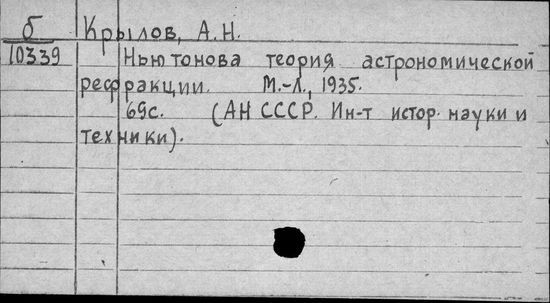 б Крылов, А.Н.
10339 Ньютонова теория астрономической
рефракции. М.-Л., 1935.
69с. (АН СССР. Ин-т истор. науки и
техники).